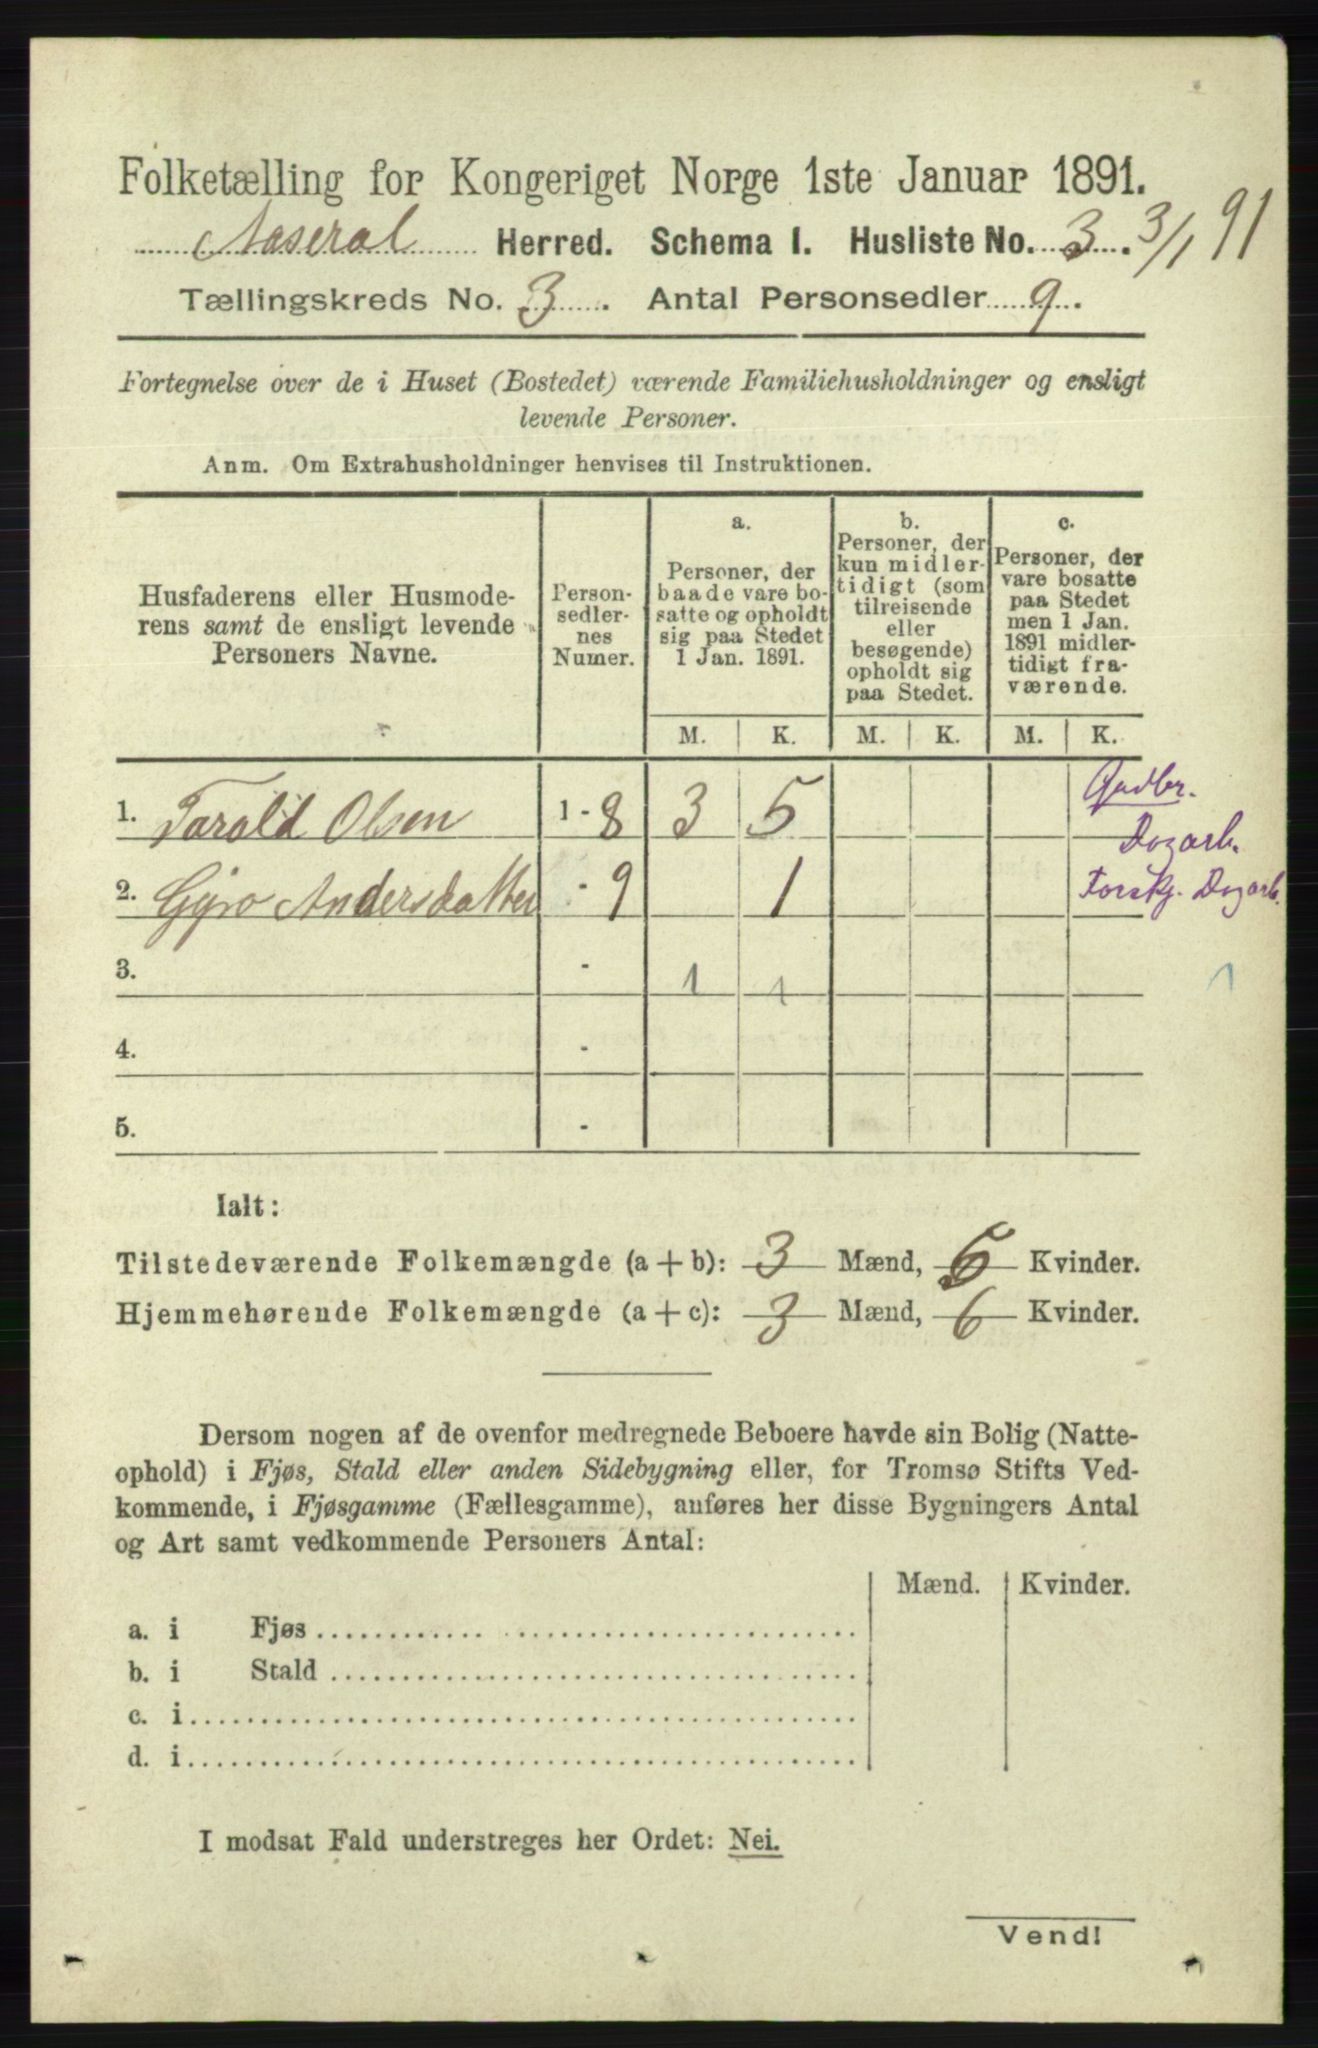 Folketælling for Kongeriget Norge 1ste Januar 1891.
Aaseral Herred. Schema I. Husliste No. 3. 3/1 91
Tællingskreds No. 3. Antal Personsedler 9.
Fortegnelse over de i Huset (Bostedet) værende Familiehusholdninger og ensligt
levende Personer.
Anm. Om Extrahusholdninger henvises til Instruktionen.
Husfaderens eller Husmode-
rens samt de ensligt levende
Personers Navne.
Person-
sedler-
nes
Numer.
a.
Personer, der
baade vare bo-
satte og opholdt
sig paa Stedet
1 Jan. 1891.
b.
Personer, der
kun midler-
tidigt (som
tilreisende
eller
besøgende)
opholdt sig
paa Stedet.
c.
Personer, der
vare bosatte
paa Stedet
men 1 Jan.
1891 midler-
tidigt fra-
værende.
M. K. M. K. M. K.
1. Tarald Olsen 1 - 8 3 5 Gadbr.
Dagarb.
2. Gyro Andersdatter - 9 1 Forskj. Dagarb.
3. - 1 1 1
4. -
5. -
Ialt:
Tilstedeværende Folkemængde (a + b): 3 Mænd, 6 Kvinder.
Hjemmehørende Folkemængde (a + c): 3 Mænd, 6 Kvinder.
Dersom nogen af de ovenfor medregnede Beboere havde sin Bolig (Natte-
ophold) i Fjøs, Stald eller anden Sidebygning eller, for Tromsø Stifts Ved-
kommende, i Fjøsgamme (Fællesgamme), anføres her disse Bygningers Antal
og Art samt vedkommende Personers Antal:
Mænd. Kvinder.
a. i Fjøs
b. i Stald
c. i
d. i
I modsat Fald understreges her Ordet: Nei.
Vend!